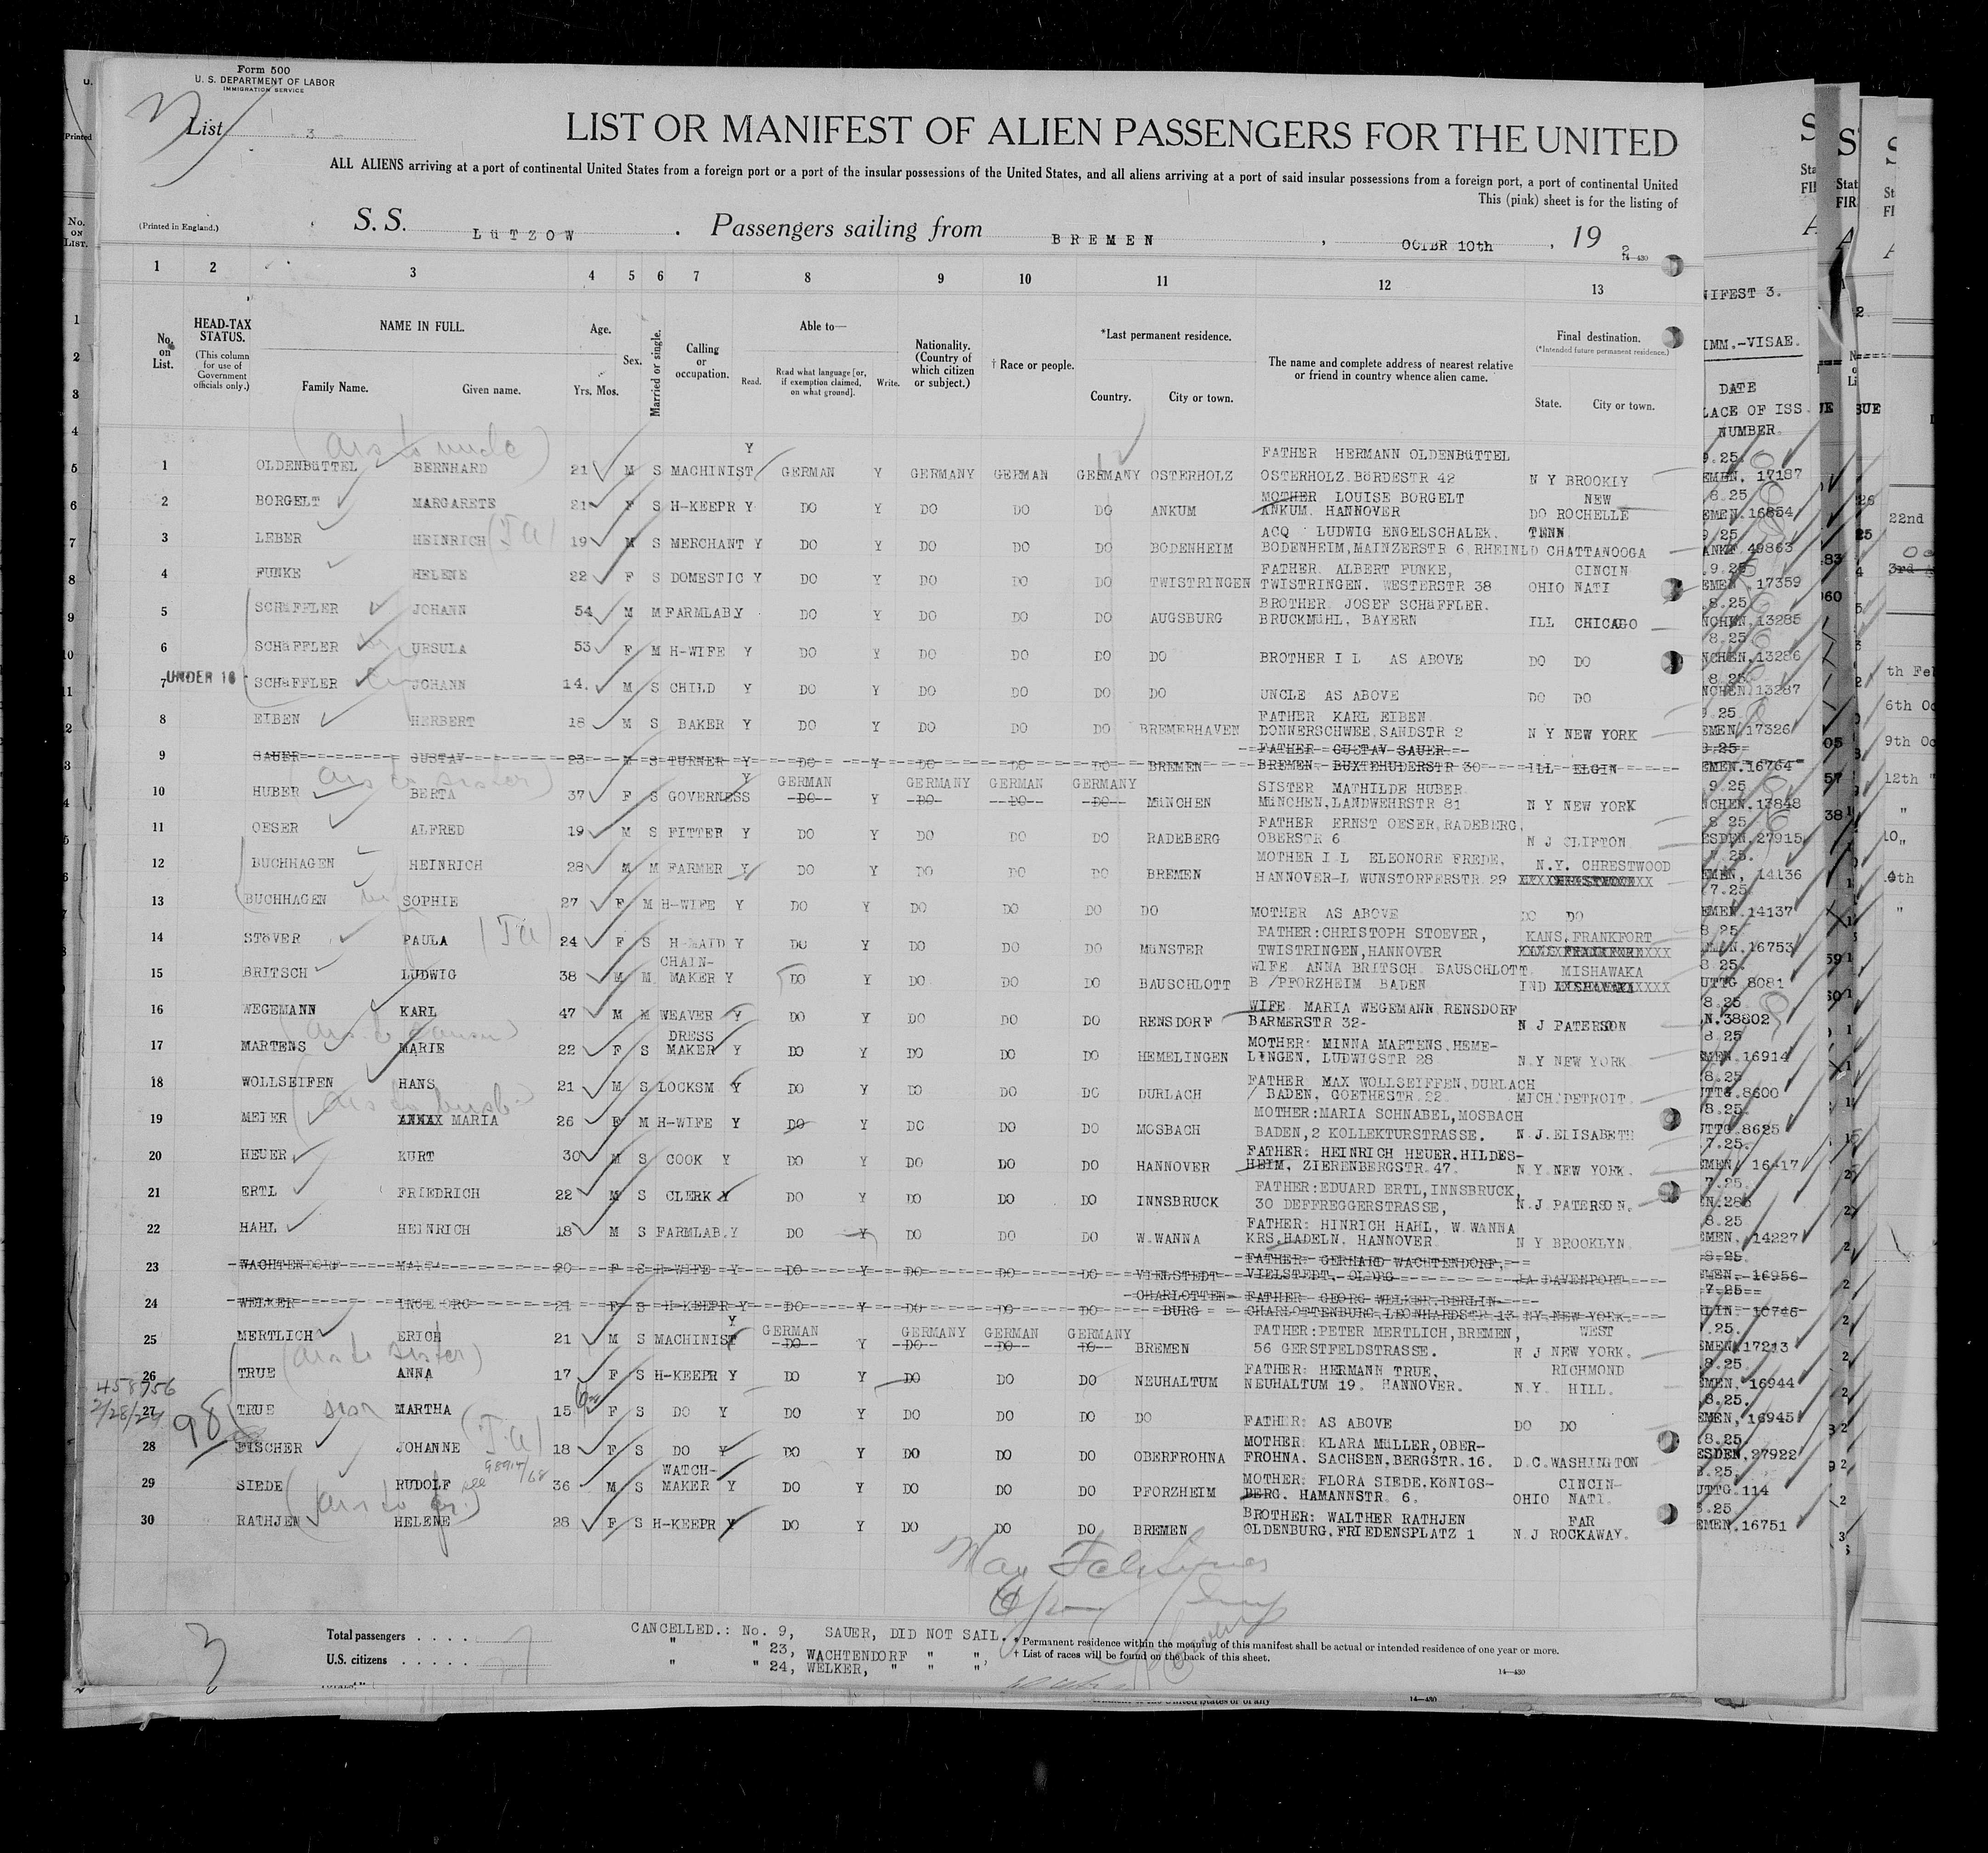 Form 500
U. S. DEPARTMENT OF LABOR
IMMIGRATION SERVICE
List 3
LIST OR MANIFEST OF ALIEN PASSENGERS FOR THE UNITED
ALL ALIENS arriving at a port of continental United States from a foreign port or a port of the insular possessions of the United States, and all aliens arriving at a port of said insular possessions from a foreign port, a port of continental United
This (pink) sheet is for the listing of
(Printed in England.)
S. S. LüTZOW. Passengers sailing from BREMEN, OCTBR 10th, 19 2
14—430
1 2 3 4 5 6 7 8 9 10 11 12 13
No. on List.
HEAD-TAX STATUS.
(This column for use of Government officials only.)
NAME IN FULL.
Family Name. Given name.
Age.
Yrs. Mos.
Sex.
Married or single.
Calling or occupation.
Able to—
Read. Read what language [or, if exemption claimed, on what ground]. Write.
Nationality. (Country of which citizen or subject.)
† Race or people.
*Last permanent residence.
Country. City or town.
The name and complete address of nearest relative or friend in country whence alien came.
Final destination.
(*Intended future permanent residence.)
State. City or town.
NIFEST 3.
IMM.-VISAE.
DATE
LACE OF ISS
NUMBER.
(ars to uncle)
FATHER HERMANN OLDENBüTTEL
1 OLDENBüTTEL BERNHARD 21 M S MACHINIST Y GERMAN Y GERMANY GERMAN GERMANY OSTERHOLZ OSTERHOLZ.BöRDESTR 42 N Y BROOKLY EMEN. 17187
MOTHER LOUISE BORGELT NEW
2 BORGELT MARGARETE 21 F S H-KEEPR Y DO Y DO DO DO ANKUM ANKUM. HANNOVER DO ROCHELLE EMEN.16854
ACQ LUDWIG ENGELSCHALEK. TENN
3 LEBER HEINRICH 19 M S MERCHANT Y DO Y DO DO DO BODENHEIM BODENHEIM,MAINZERSTR 6 RHEINLD CHATTANOOGA ANKF 49863
FATHER. ALBERT FUNKE, CINCIN
4 FUNKE HELENE 22 F S DOMESTIC Y DO Y DO DO DO TWISTRINGEN TWISTRINGEN. WESTERSTR 38 OHIO NATI EMEN. 17359
BROTHER JOSEF SCHäFFLER.
5 SCHäFFLER JOHANN 54 M M FARMLABY DO Y DO DO DO AUGSBURG BRUCKMüHL, BAYERN ILL CHICAGO NCHEN.13285
6 SCHäFFLER URSULA 53 F M H-WIFE Y DO Y DO DO DO DO BROTHER I L AS ABOVE DO DO NCHEN.13286
UNDER 16
7 SCHäFFLER JOHANN 14. M S CHILD Y DO Y DO DO DO DO UNCLE AS ABOVE DO DO NCHEN.13287
FATHER KARL EIBEN
8 EIBEN HERBERT 18 M S BAKER Y DO Y DO DO DO BREMERHAVEN DONNERSCHWEE.SANDSTR 2 N Y NEW YORK EMEN.17326
FATHER GUSTAV SAUER
9 SAUER GUSTAV 23 M S TURNER Y DO Y DO DO DO BREMEN BREMEN. BUXTEHUDERSTR 30 ILL ELGIN EMEN.16764
(ars to sister)
SISTER MATHILDE HUBER
10 HUBER BERTA 37 F S GOVERNESS Y GERMAN DO Y GERMANY DO GERMAN DO GERMANY DO MüNCHEN MüNCHEN,LANDWEHRSTR 81 N Y NEW YORK NCHEN.13848
FATHER ERNST OESER,RADEBERG,
11 OESER ALFRED 19 M S FITTER Y DO Y DO DO DO RADEBERG OBERSTR 6 N J CLIFTON ESDEN.27915
MOTHER I L ELEONORE FREDE, N.Y. CHRESTWOOD
12 BUCHHAGEN HEINRICH 28 M M FARMER Y DO Y DO DO DO BREMEN HANNOVER-L WUNSTORFERSTR 29 EMEN, 14136
13 BUCHHAGEN SOPHIE 27 F M H-WIFE Y DO Y DO DO DO DO MOTHER AS ABOVE DO DO EMEN.14137
FATHER:CHRISTOPH STOEVER, KANS.FRANKFORT
14 STöVER PAULA 24 F S H-MAID Y DO Y DO DO DO MüNSTER TWISTRINGEN,HANNOVER EMEN.16753
CHAIN- WIFE ANNA BRITSCH BAUSCHLOTT MISHAWAKA
15 BRITSCH LUDWIG 38 M M MAKER Y DO Y DO DO DO BAUSCHLOTT B /PFORZHEIM BADEN IND UTTG 8081
WIFE MARIA WEGEMANN RENSDORF
16 WEGEMANN KARL 47 M M WEAVER Y DO Y DO DO DO RENSDORF BARMERSTR 32- N J PATERSON N.38802
DRESS MOTHER: MINNA MARTENS,HEME-
17 MARTENS MARIE 22 F S MAKER Y DO Y DO DO DO HEMELINGEN LINGEN, LUDWIGSTR 28 N.Y NEW YORK EMEN.16914
FATHER MAX WOLLSEIFFEN,DURLACH
18 WOLLSEIFEN HANS 21 M S LOCKSM Y DO Y DO DO DO DURLACH / BADEN, GOETHESTR 22 MICH.DETROIT. UTTG.8600
(ars to husb.)
MOTHER:MARIA SCHNABEL,MOSBACH
19 MEIER MARIA 26 F M H-WIFE Y DO Y DO DO DO MOSBACH BADEN,2 KOLLEKTURSTRASSE. N.J.ELISABETH UTTG.8625
FATHER: HEINRICH HEUER.HILDES-
20 HEUER KURT 30 M S COOK Y DO Y DO DO DO HANNOVER HEIM. ZIERENBERGSTR.47. N.Y.NEW YORK.
FATHER:EDUARD ERTL,INNSBRUCK,
21 ERTL FRIEDRICH 22 M S CLERK Y DO Y DO DO DO INNSBRUCK 30 DEFFREGGERSTRASSE, N.J.PATERSON.
FATHER: HINRICH HAHL, W.WANNA
22 HAHL HEINRICH 18 M S FARMLAB.Y DO Y DO DO DO W.WANNA KRS.HADELN. HANNOVER N Y BROOKLYN EMEN. 14227
FATHER: GERHARD WACHTENDORF,
23 WACHTENDORF MARTA 20 F S H-WIFE Y DO Y DO DO DO VIELSTEDT VIELSTEDT. OLDBG IA DAVENPORT EMEN. 16956
CHARLOTTEN- FATHER GEORG WELKER.BERLIN-
24 WELKER INGEBORG 21 F S H-KEEPR Y DO Y DO DO DO BURG CHARLOTTENBURG.LEONHARDSTR 13 NY NEW YORK.
FATHER:PETER MERTLICH,BREMEN, WEST
25 MERTLICH ERICH 21 M S MACHINIST Y GERMAN DO Y GERMANY DO GERMAN DO GERMANY DO BREMEN 56 GERSTFELDSTRASSE. N J NEW YORK. EMEN.17213
(ars to sister)
FATHER: HERMANN TRUE, RICHMOND
26 TRUE ANNA 17 F S H-KEEPR Y DO Y DO DO DO NEUHALTUM NEUHALTUM 19. HANNOVER. N.Y. HILL. EMEN, 16944
27 TRUE MARTHA 15 F S DO Y DO Y DO DO DO DO FATHER: AS ABOVE DO DO EMEN, 16945
98
MOTHER: KLARA MüLLER,OBER-
28 FISCHER JOHANNE 18 F S DO Y DO Y DO DO DO OBERFROHNA FROHNA. SACHSEN,BERGSTR.16. D.C.WASHINGTON ESDEN.27922
WATCH- MOTHER: FLORA SIEDE.KöNIGS- CINCIN-
29 SIEDE RUDOLF 36 M S MAKER Y DO Y DO DO DO PFORZHEIM BERG. HAMANNSTR. 6. OHIO NATI. UTTG.114
BROTHER: WALTHER RATHJEN FAR
30 RATHJEN HELENE 28 F S H-KEEPR Y DO Y DO DO DO BREMEN OLDENBURG,FRIEDENSPLATZ 1 N.J ROCKAWAY. EMEN.16751
3
Total passengers . . . .
U.S. citizens . . . . .
27
CANCELLED.: No. 9, SAUER, DID NOT SAIL.
" " 23, WACHTENDORF " ",
" " 24, WELKER, " " "
* Permanent residence within the meaning of this manifest shall be actual or intended residence of one year or more.
† List of races will be found on the back of this sheet.
14—430